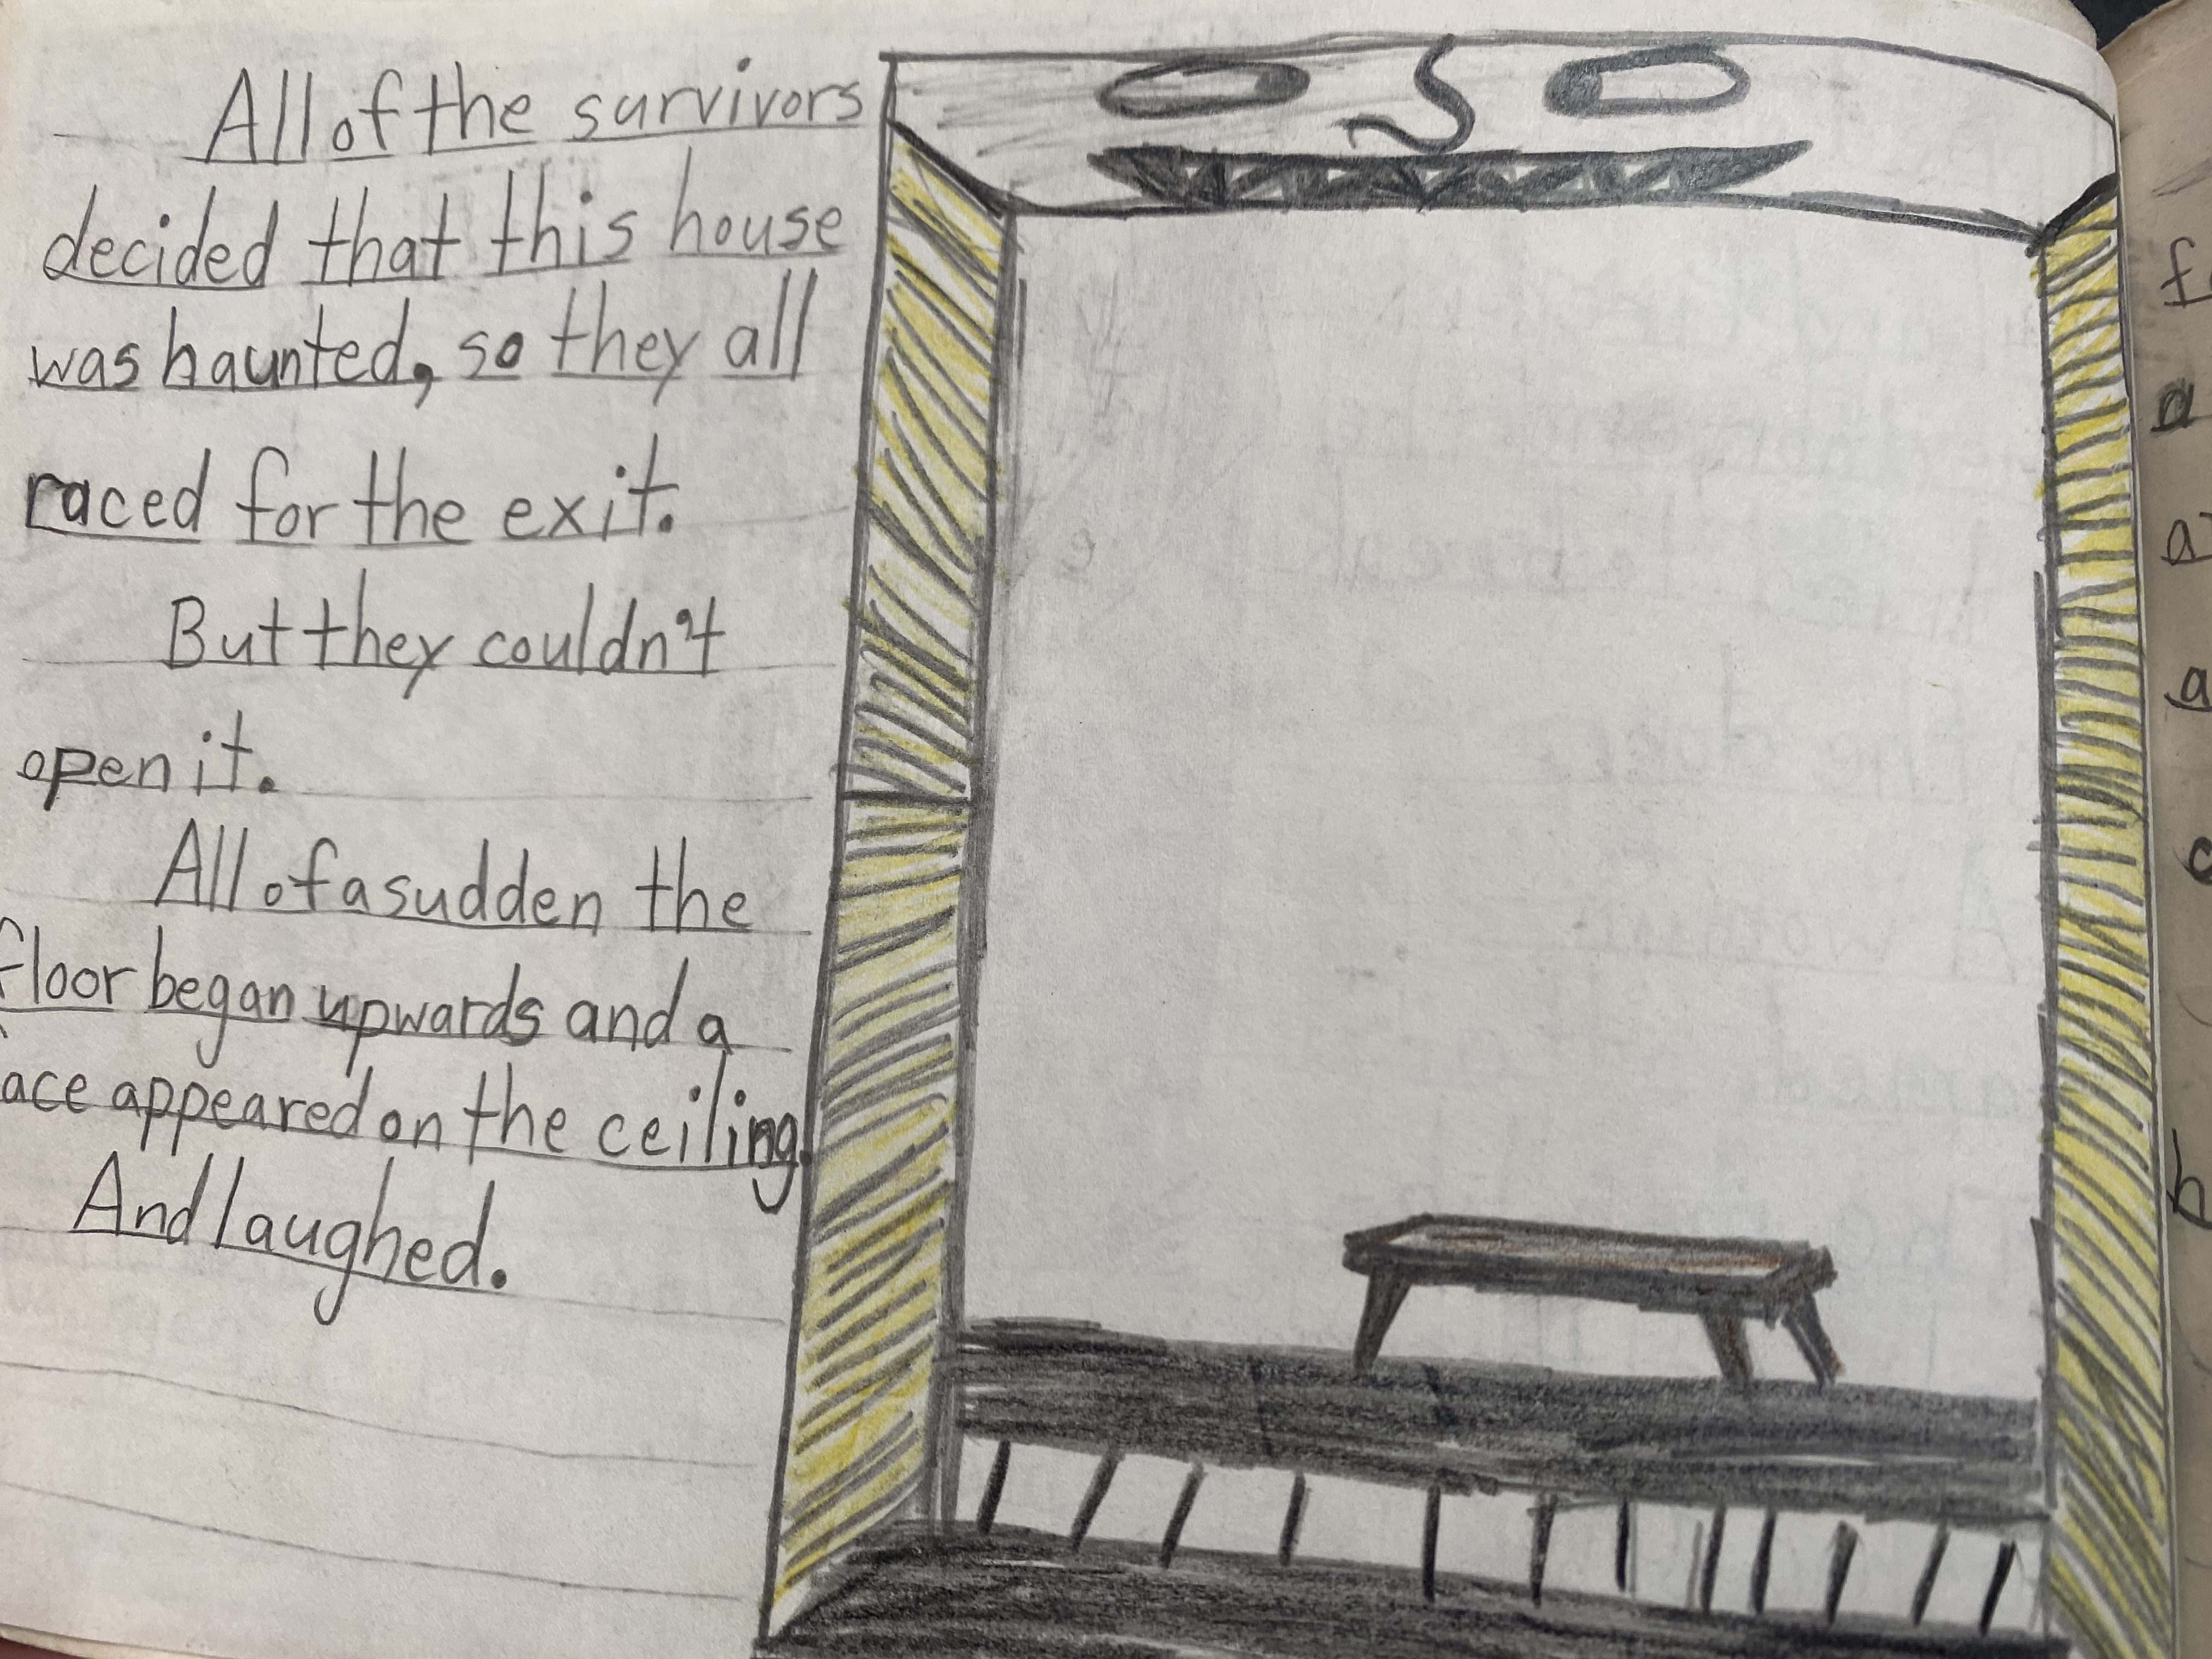 All of the survivors
decided that this house
was haunted, so they all
raced for the exit.
But they couldn't
open it.
All of a sudden the
floor began upwards and a
ace appeared on the ceiling.
And laughed.